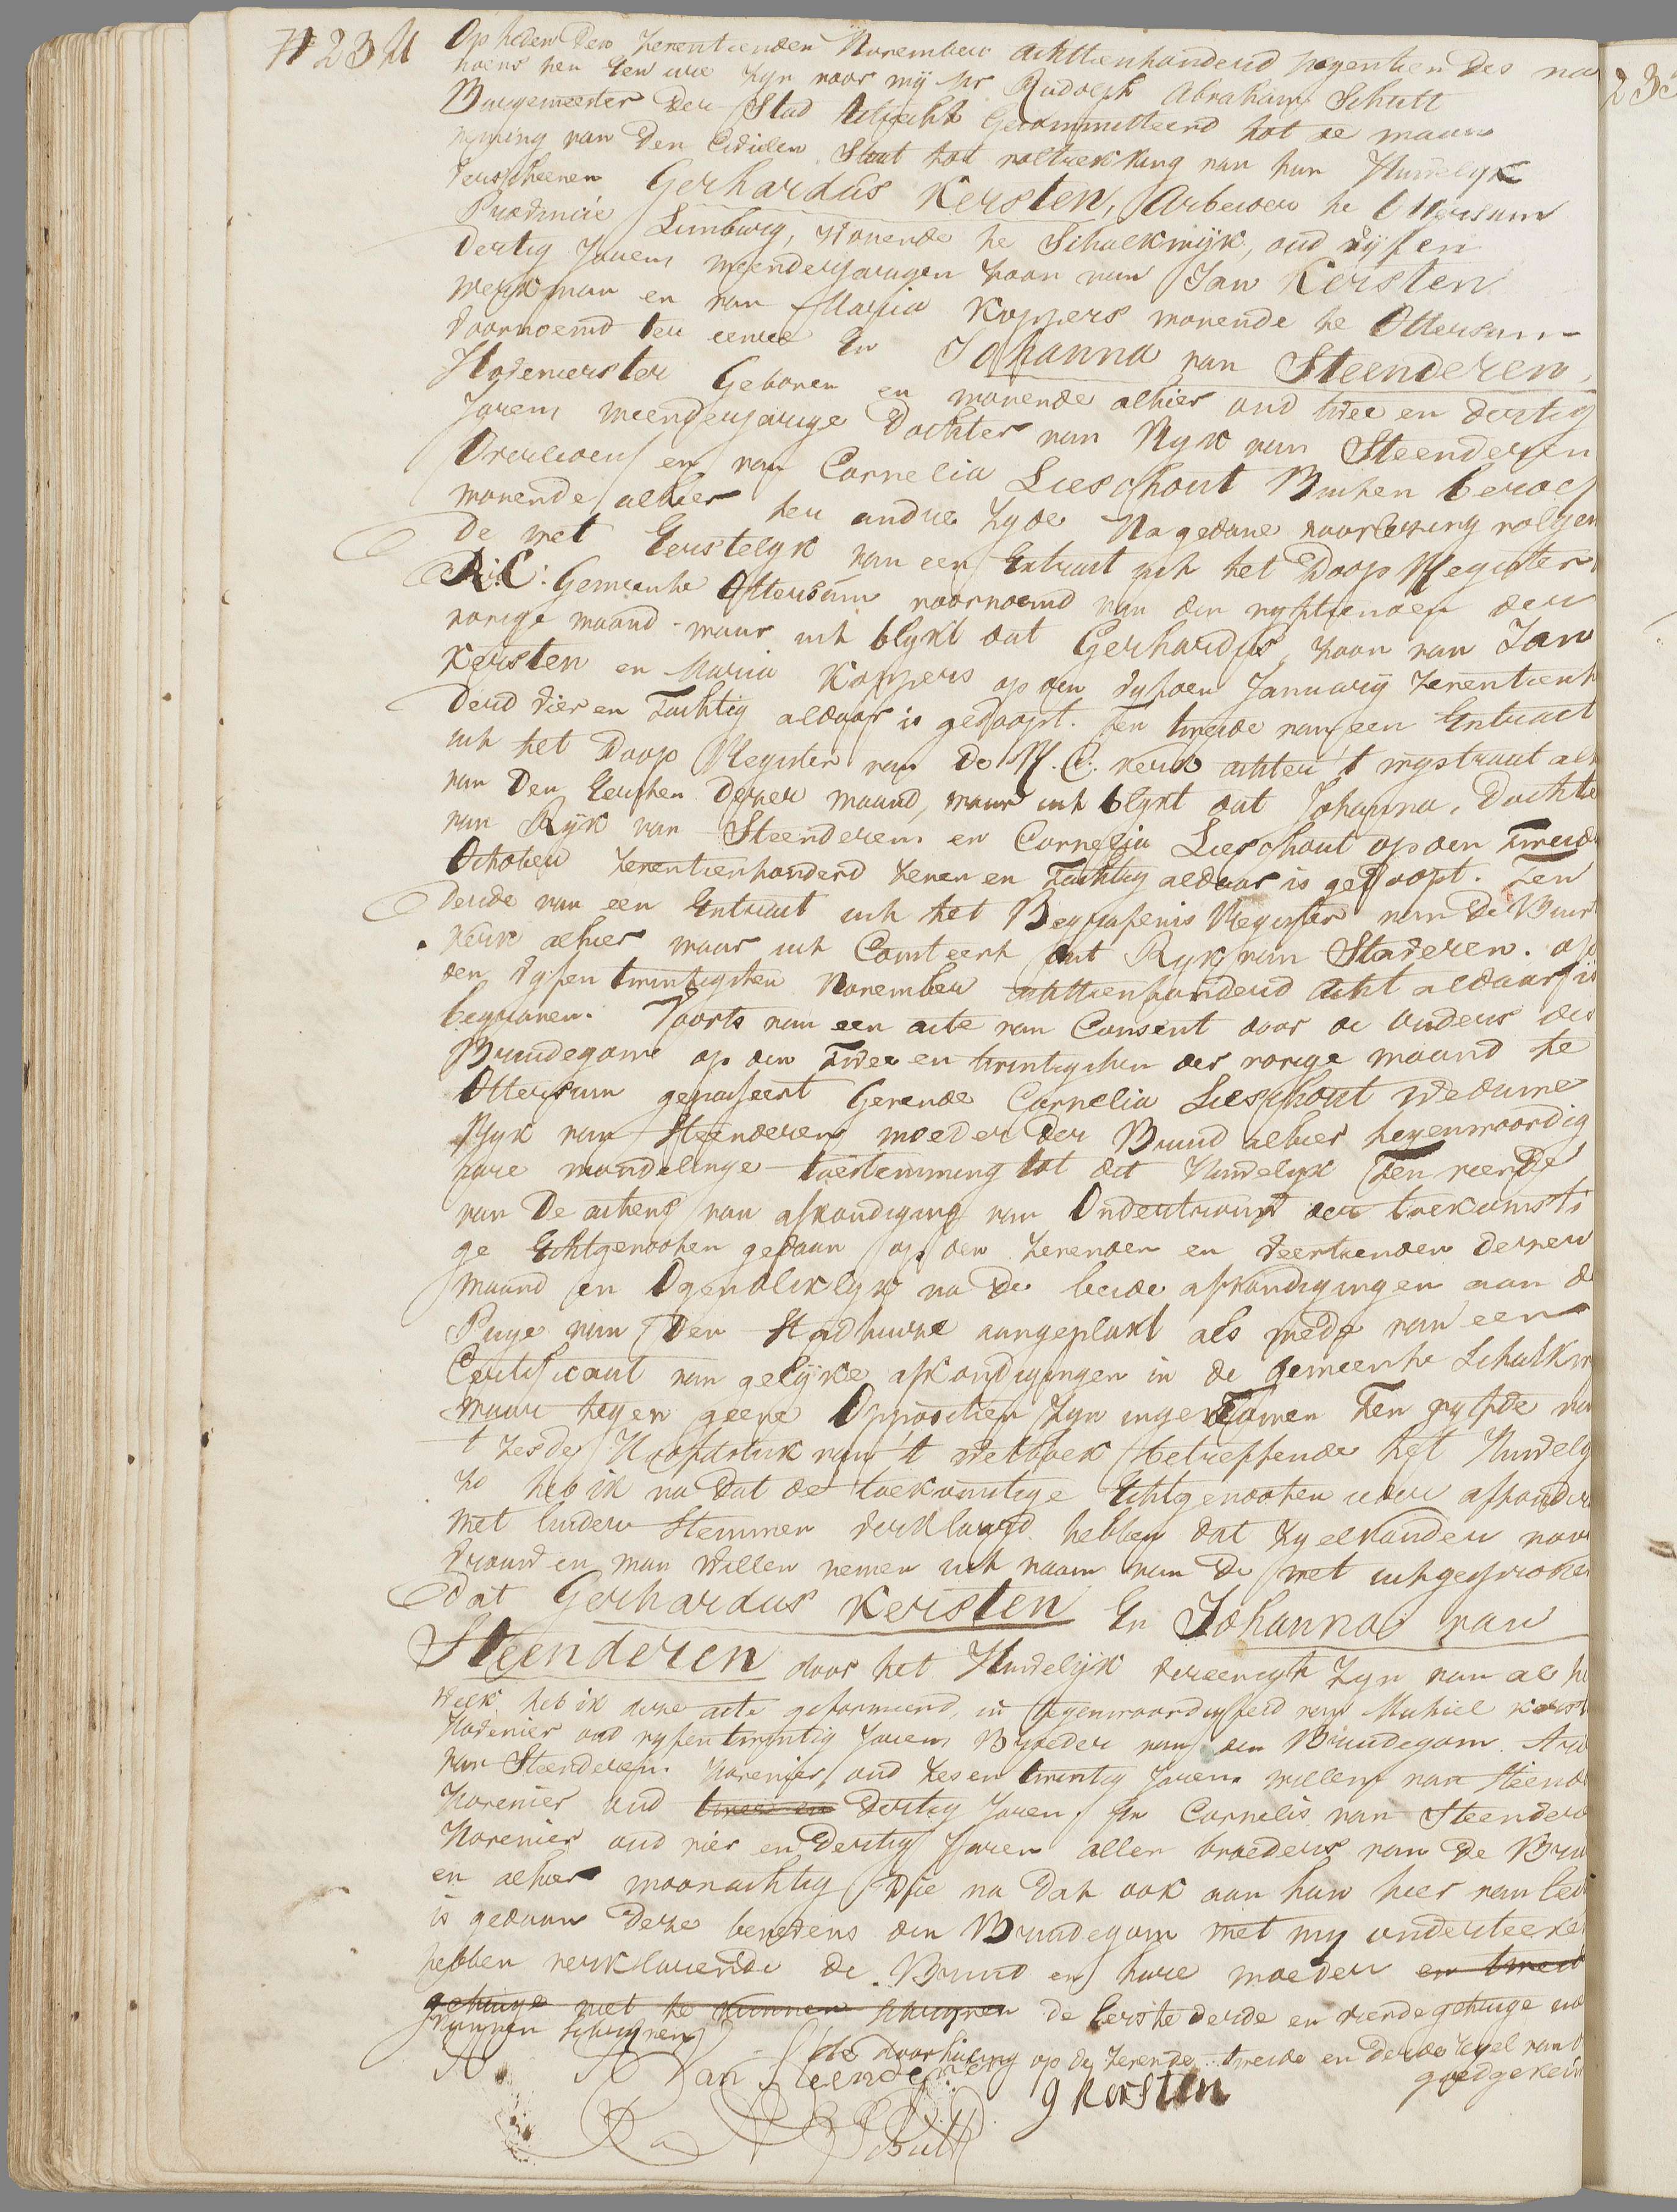 N 234
Op heden den zeventienden November achttienhonderd negentien des na
noens ten een ure zyn voor mij Mr Rudolph Abraham Schutt
Burgemeester der Stad Utrecht Gecommitteerd tot de waar
neming van den Civielen Staat tot voltrekking van hun Huwelyk
verscheenen Gerhardus Kersten, Arbeider te Ottersum
Provincie Limburg, wonende te Schalkwijk, oud vijf en
dertig Jaren meerderjarigen zoon van Jan Kersten
werkman en van Maria Koppers wonende te Ottersum
voornoemd ter eenre En Johanna van Steenderen,
Hovenierster Geboren en wonende alhier oud twee en dertig
Jaren meerderjarige Dochter van Ryk van Steenderen
Overleden en van Cornelia Lieschout Buiten beroep
wonende alhier ter andre zyde Na gedane voorlezing volgen
de wet Eerstelyk van een Extract uit het Doop Register
R:C: Gemeente Ottersum voornoemd van den vyftienden der
vorige maand waar uit blykt dat Gerhardus, zoon van Jan
Kersten en Maria Koppers op den vyfden January zeventienh
derd vier en Tachtig aldaar is gedoopt. Ten tweede van een Extract
uit het Doop Register van de R. C. kerk achter 't wystraat alh
van den Eersten dezer maand, waar uit blykt dat Johanna, Dochte
van Ryk van Steenderen en Cornelia Lieschout op den Tweede
October zeventienhonderd zeven en Tachtig aldaar is gedoopt. Ten
derde van een Extract uit het Begrafenis Register van de Buur
kerk alhier waar uit Consteert dat Ryk van Staderen. op
den vyfen twintigsten November achttienhonderd acht aldaar is
begraven. Voorts van een acte van Consent door de Ouders des
Bruidegoms op den Twee en twintigsten der vorige maand te
Ottersum gepasseert Gevende Cornelia Lieschout Weduwe
Ryk van Steenderen moeder der Bruid alhier tegenwoordig
hare mondelinge toestemming tot dit Huwelyk Ten vierde
van de actens van afkondiging van Ondertrouw der toekomsti
ge Echtgenooten gedaan op den zevenden en veertienden dezer
maand en Ogenblikelyk na de beide afkondigingen aan de
Puye van den Stadhuize aangeplakt als mede van een
Certificaat van gelijke afkondigingen in de gemeente Schalkw
waar tegen geene Oppositien zyn ingekomen Ten vyfde van
't zesde Hoofdstuk van 't wetboek betreffende het Huwely
zo heb ik na dat de toekomstige Echtgenooten ieder afzonder
met luider Stemmen verklaard hebben dat zy elkander voor
vrouw en man willen nemen uit naam van de wet uitgesproke
dat Gerhardus Kersten En Johanna van
Steenderen door het Huwelyk vereenigt zyn van al he
welk heb ik deze acte geformeerd, in tegenwoordigheid van Michiel Kerst
Hovenier oud vyfentwintig Jaren Broeder van den Bruidegom. Arie
van Steenderen. Hovenier, oud zes en twintig Jaren. willem van Steend
Hovenier oud twee en Dertig Jaren. En Cornelis van Steendere
Hovenier oud vier en Dertig Jaren allen broeders van de Bru
en alhier woonachtig die na dat ook aan hun hier van lect
is gedaan deze benevens den Bruidegom met my onderteeke
hebben verklarende de Bruid en hare moeder en twee
getuige niet te kunnen schryven de Eerste derde en vierde getuige nie
kunnen schryven
de doorhaling op de zevende tweede en derde regel van
goedgekeur
Van Steenderen
g kersten
R A Schutt